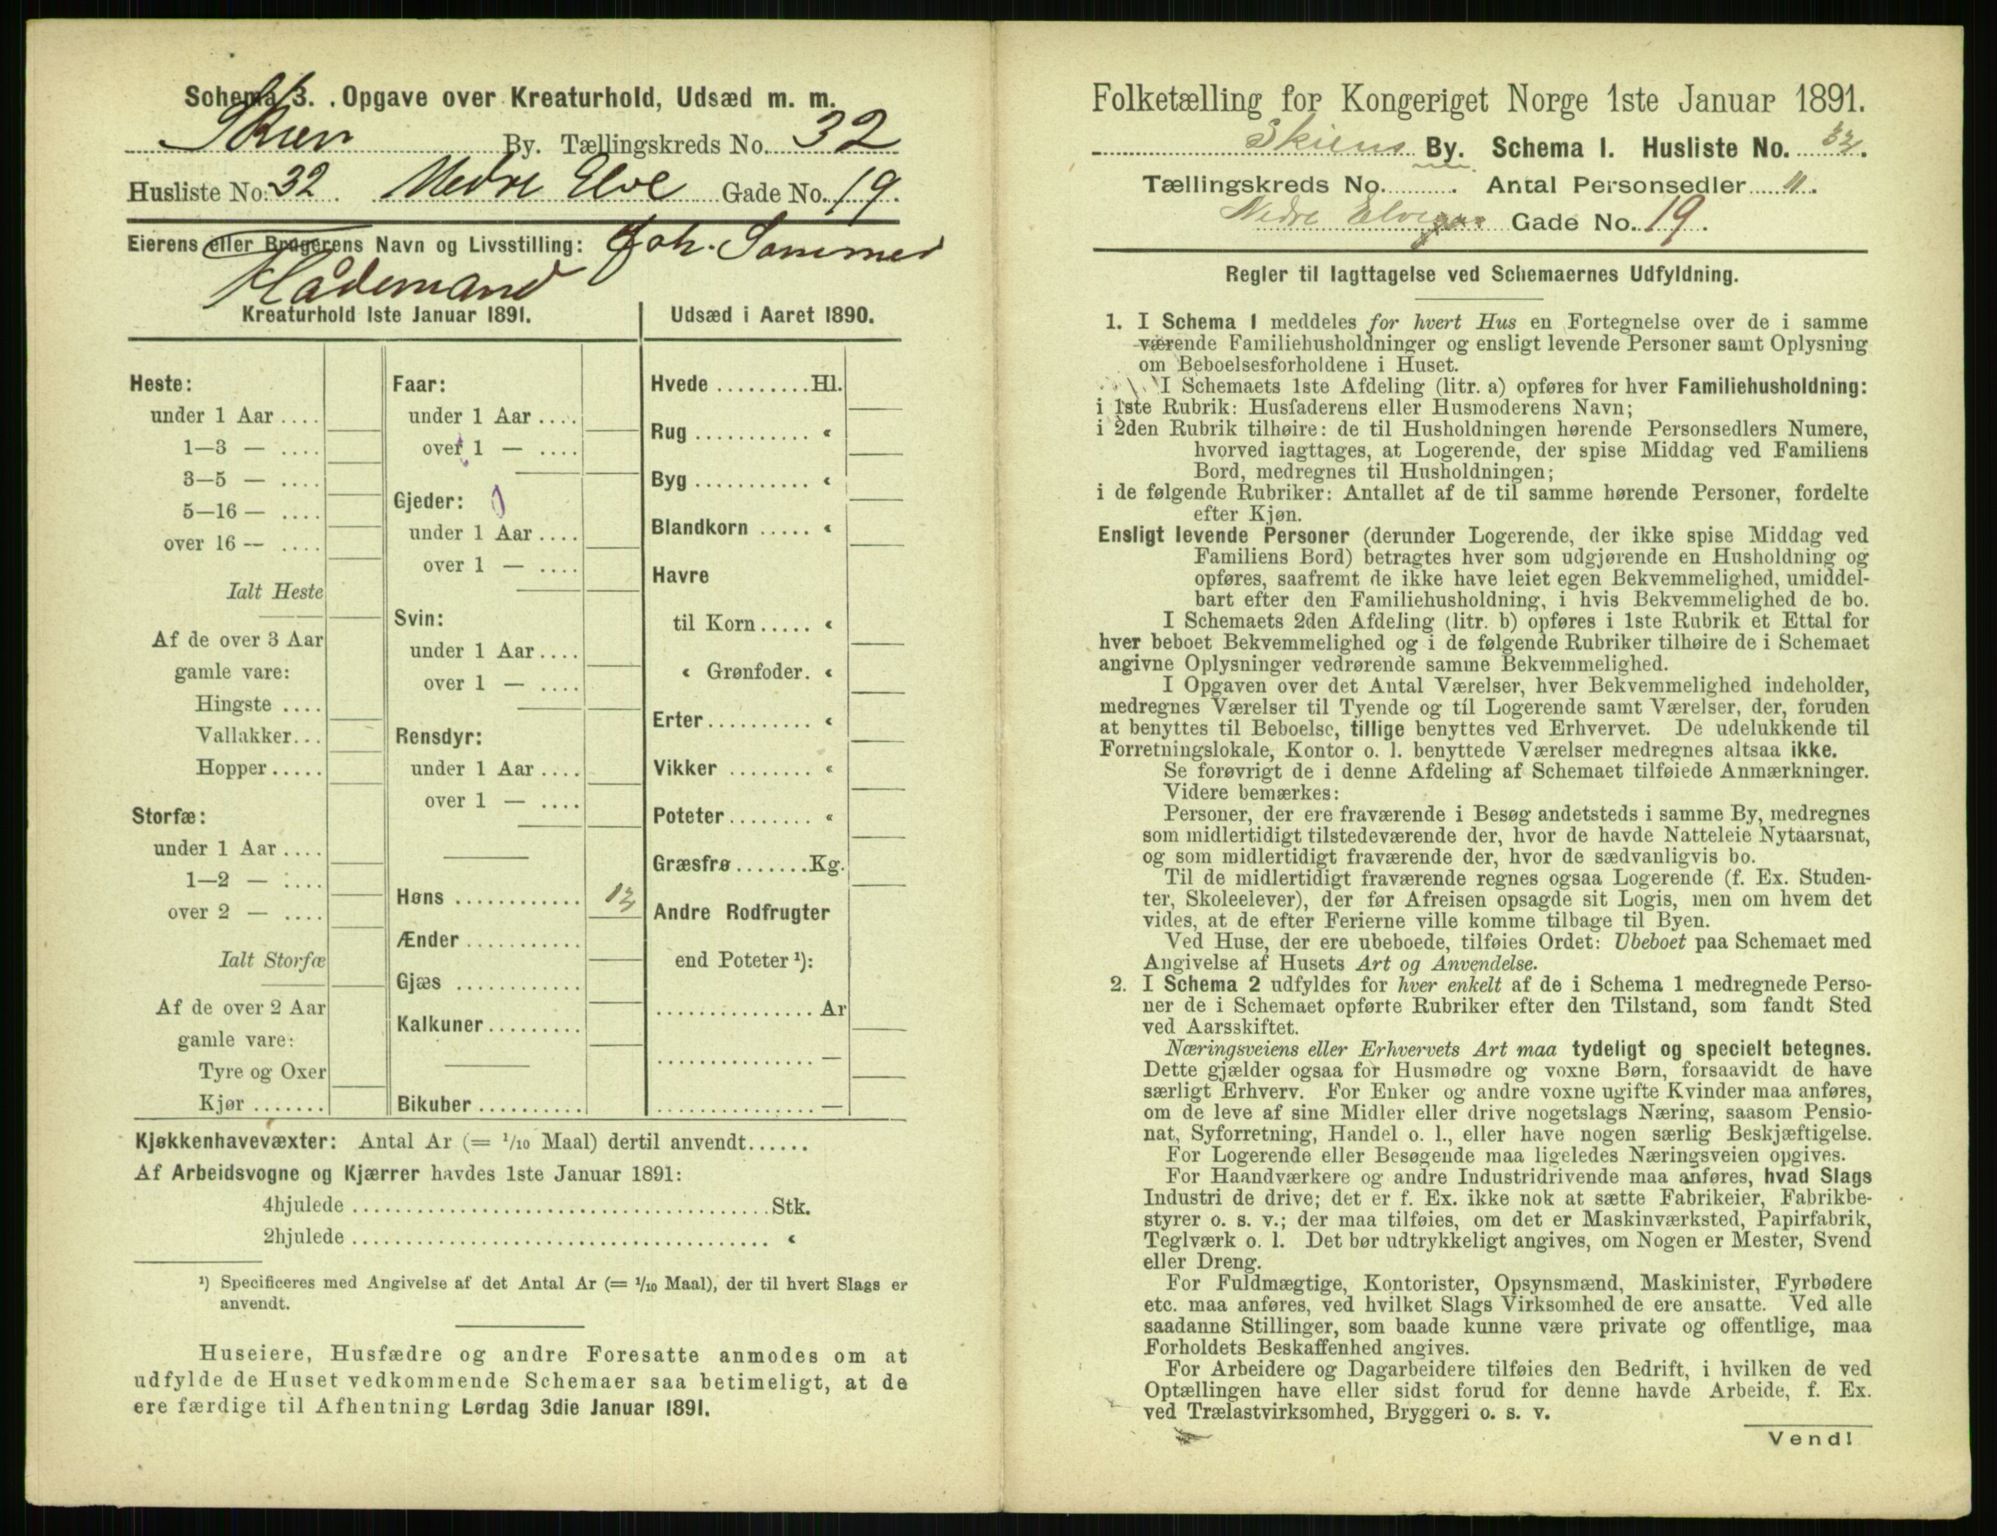 Schema 3. . Opgave over Kreaturhold, Udsæd m. m.
Skien By. Tællingskreds No. 32
Husliste No: 32. Nedre Elve Gade No. 19.
Eierens eller Brugerens Navn og Livsstilling: Joh. Sommer
Kreaturhold 1ste Januar 1891.
Heste:
under 1 Aar ....
1—3 — ....
3—5 — ....
5—16 — ....
over 16 — ....
Ialt Heste
Af de over 3 Aar
gamle vare:
Hingste ....
Vallakker...
Hopper.....
Storfæ:
under 1 Aar ....
1—2 — ....
over 2 — ....
Ialt Storfæ
Af de over 2 Aar
gamle vare:
Tyre og Oxer
Kjør .......
Faar:
under 1 Aar ....
over 1 — ....
Gjeder:
under 1 Aar ....
over 1 — ....
Svin:
under 1 Aar ....
over 1 — ....
Rensdyr:
under 1 Aar ....
over 1 — ....
Høns ............
Ænder ...........
Gjæs ............
Kalkuner.........
Bikuber ..........
Udsæd i Aaret 1890.
Hvede .........Hl.
Rug ........... «
Byg ........... «
Blandkorn ..... «
Havre
til Korn ..... «
« Grønfoder. «
Erter.......... «
Vikker ........ «
Poteter........ «
Græsfrø .......Kg.
Andre Rodfrugter
end Poteter ¹):
............... Ar
............... —
............... —
Kjøkkenhavevæxter: Antal Ar (= 1/10 Maal) dertil anvendt......
Af Arbeidsvogne og Kjærrer havdes 1ste Januar 1891:
4hjulede ....................................... Stk.
2hjulede ....................................... «
¹) Specificeres med Angivelse af det Antal Ar (= 1/10 Maal), der til hvert Slags er
anvendt.
Huseiere, Husfædre og andre Foresatte anmodes om at
udfylde de Huset vedkommende Schemaer saa betimeligt, at de
ere færdige til Afhentning Lørdag 3die Januar 1891.
Folketælling for Kongeriget Norge 1ste Januar 1891.
Skiens By. Schema I. Husliste No. 32.
Tællingskreds No. ........ . Antal Personsedler 11.
Nedre Elvegae Gade No. 19.
Regler til Iagttagelse ved Schemaernes Udfyldning.
1. I Schema 1 meddeles for hvert Hus en Fortegnelse over de i samme
værende Familiehusholdninger og ensligt levende Personer samt Oplysning
om Beboelsesforholdene i Huset.
I Schemaets 1ste Afdeling (litr. a) opføres for hver Familiehusholdning:
i 1ste Rubrik: Husfaderens eller Husmoderens Navn;
i 2den Rubrik tilhøire: de til Husholdningen hørende Personsedlers Numere,
hvorved iagttages, at Logerende, der spise Middag ved Familiens
Bord, medregnes til Husholdningen;
i de følgende Rubriker: Antallet af de til samme hørende Personer, fordelte
efter Kjøn.
Ensligt levende Personer (derunder Logerende, der ikke spise Middag ved
Familiens Bord) betragtes hver som udgjørende en Husholdning og
opføres, saafremt de ikke have leiet egen Bekvemmelighed, umiddel-
bart efter den Familiehusholdning, i hvis Bekvemmelighed de bo.
I Schemaets 2den Afdeling (litr. b) opføres i 1ste Rubrik et Ettal for
hver beboet Bekvemmelighed og i de følgende Rubriker tilhøire de i Schemaet
angivne Oplysninger vedrørende samme Bekvemmelighed.
I Opgaven over det Antal Værelser, hver Bekvemmelighed indeholder,
medregnes Værelser til Tyende og til Logerende samt Værelser, der, foruden
at benyttes til Beboelse, tillige benyttes ved Erhvervet. De udelukkende til
Forretningslokale, Kontor o. l. benyttede Værelser medregnes altsaa ikke.
Se forøvrigt de i denne Afdeling af Schemaet tilføiede Anmærkninger.
Videre bemærkes:
Personer, der ere fraværende i Besøg andetsteds i samme By, medregnes
som midlertidigt tilstedeværende der, hvor de havde Natteleie Nytaarsnat,
og som midlertidigt fraværende der, hvor de sædvanligvis bo.
Til de midlertidigt fraværende regnes ogsaa Logerende (f. Ex. Studen-
ter, Skoleelever), der før Afreisen opsagde sit Logis, men om hvem det
vides, at de efter Ferierne ville komme tilbage til Byen.
Ved Huse, der ere ubeboede, tilføies Ordet: Ubeboet paa Schemaet med
Angivelse af Husets Art og Anvendelse.
2. I Schema 2 udfyldes for hver enkelt af de i Schema 1 medregnede Perso-
ner de i Schemaet opførte Rubriker efter den Tilstand, som fandt Sted
ved Aarsskiftet.
Næringsveiens eller Erhvervets Art maa tydeligt og specielt betegnes.
Dette gjælder ogsaa for Husmødre og voxne Børn, forsaavidt de have
særligt Erhverv. For Enker og andre voxne ugifte Kvinder maa anføres,
om de leve af sine Midler eller drive nogetslags Næring, saasom Pensio-
nat, Syforretning, Handel o. l., eller have nogen særlig Beskjæftigelse.
For Logerende eller Besøgende maa ligeledes Næringsveien opgives.
For Haandværkere og andre Industridrivende maa anføres, hvad Slags
Industri de drive; det er f. Ex. ikke nok at sætte Fabrikeier, Fabrikbe-
styrer o. s. v.; der maa tilføies, om det er Maskinværksted, Papirfabrik,
Teglværk o. l. Det bør udtrykkeligt angives, om Nogen er Mester, Svend
eller Dreng.
For Fuldmægtige, Kontorister, Opsynsmænd, Maskinister, Fyrbødere
etc. maa anføres, ved hvilket Slags Virksomhed de ere ansatte. Ved alle
saadanne Stillinger, som baade kunne være private og offentlige, maa
Forholdets Beskaffenhed angives.
For Arbeidere og Dagarbeidere tilføies den Bedrift, i hvilken de ved
Optællingen have eller sidst forud for denne havde Arbeide, f. Ex.
ved Trælastvirksomhed, Bryggeri o. s. v.
Vend!